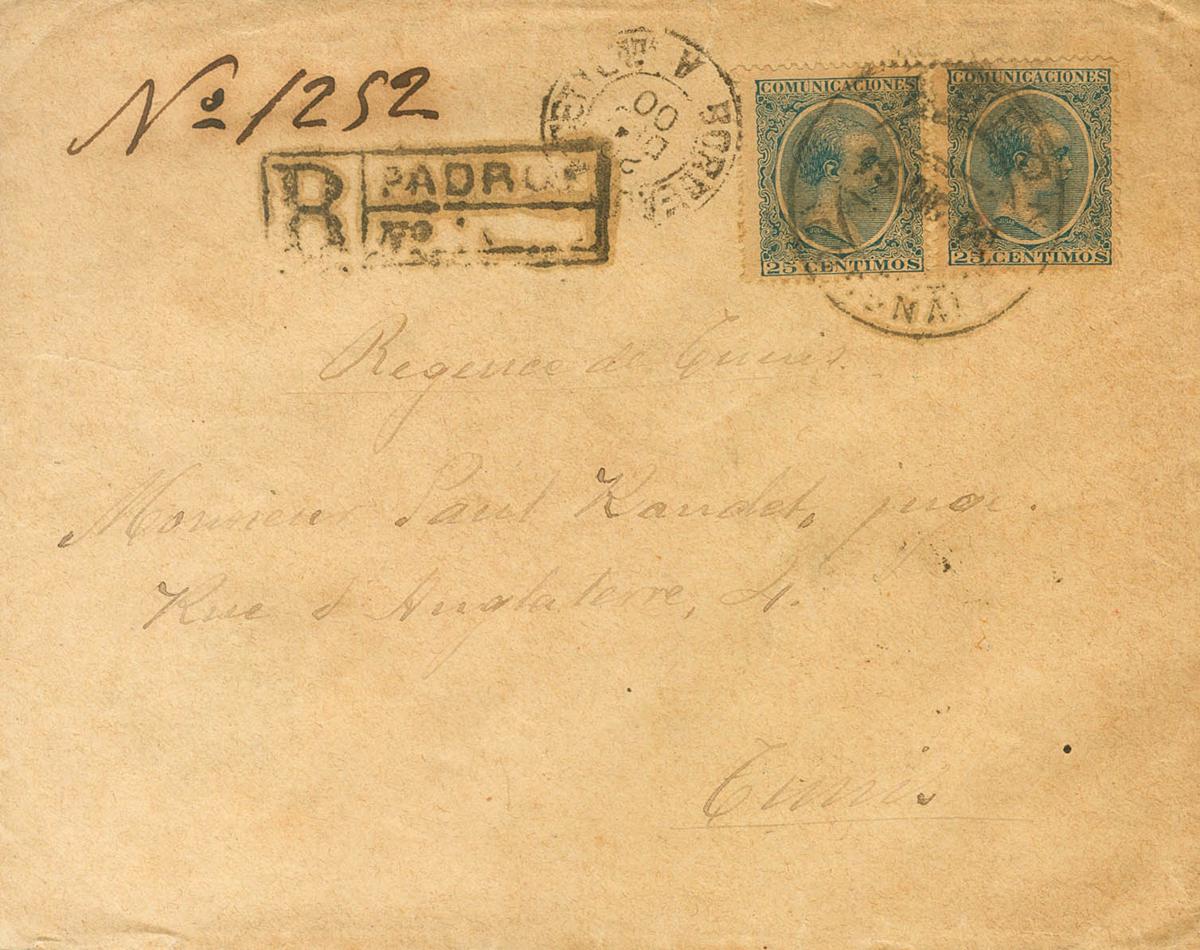 Nº 1252
R PADRON
Nº
COMUNICACIONES
25 CENTIMOS
COMUNICACIONES
25 CENTIMOS
Regence de Tunis.
Monsieur Paul Kandet, juge.
Rue d'Angleterre, 4.
Tunis